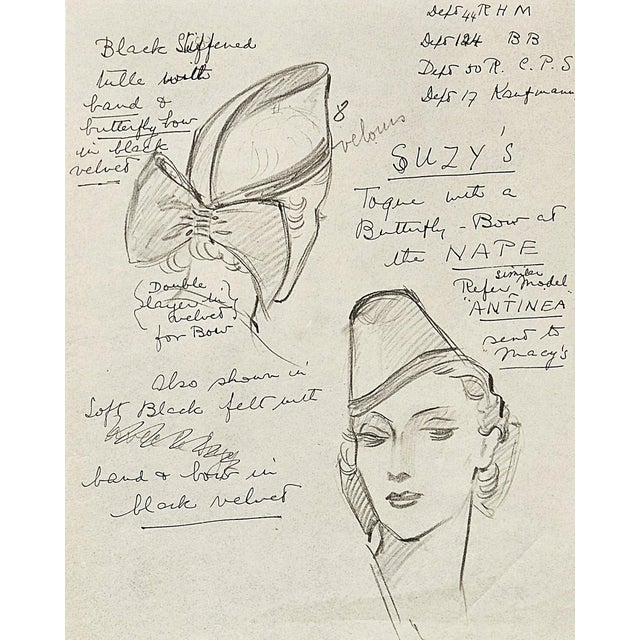 Dept 44 R H M
Dept 124 B B
Dept 50 R. C. P. S
Dept 17 Kaufmann
Black Stiffened
tulle with
band &
butterfly bow
in black
velvet
8
velours
SUZY'S
Toque with a
Butterfly - Bow at
the NAPE
similar
Refer Model
"ANTINEA"
send to
"Macy's
{Double
layer in
velvet}
for Bow
also shown in
Soft Black felt with
band & bow in
black velvet